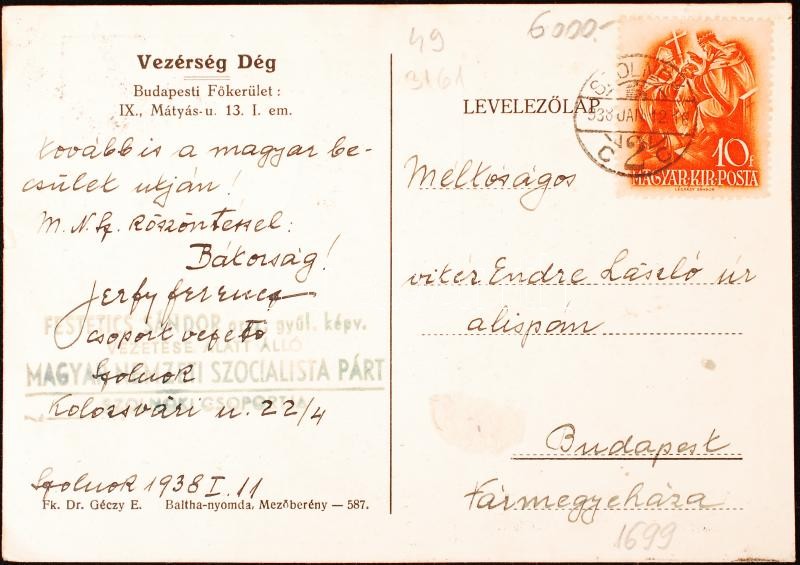 Vezérség Dég
Budapesti Főkerület :
IX., Mátyás-u. 13. I. em.
tovább is a magyar be-
csület utján!
M. N. Sz. köszöntéssel:
Bátorság!
Jerfy ferenc
csoport vezető
Szolnok
Kolozsvári u. 22/4
FESTETICS SÁNDOR gróf gyűl. képv.
VEZETÉSE ALATT ÁLLÓ
MAGYAR NEMZETI SZOCIALISTA PÁRT
SZOLNOKI CSOPORTJA
Szolnok 1938 I. 11
Fk. Dr. Géczy E. Baltha-nyomda, Mezőberény — 587.
49
3161
6000.-
LEVELEZŐLAP
SZOLNOK
938 JAN. 12
10f
MAGYAR·KIR·POSTA
LÉGRÁDY SÁNDOR
Méltóságos
vitéz Endre László úr
alispán
Budapest
Vármegyeháza
1699